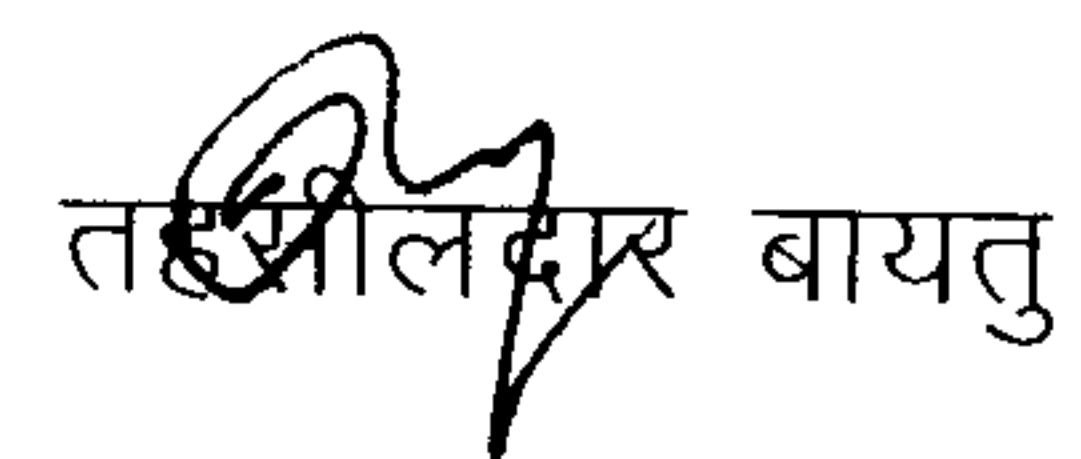 तहसीलदार बायतु